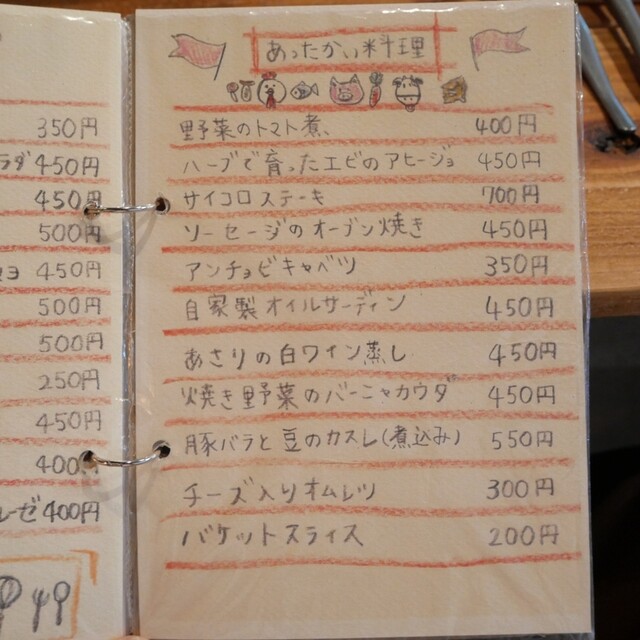 350円
ラダ 450円
450円
500円
ヨ 450円
500円
500円
250円
450円
400
ーゼ 400円
あったかい料理
野菜のトマト煮、 400円
ハーブで育ったエビのアヒージョ 450円
サイコロステーキ 700円
ソーセージのオーブン焼き 450円
アンチョビキャベツ 350円
自家製オイルサーディン 450円
あさりの白ワイン蒸し 450円
焼き野菜のバーニャカウダ 450円
豚バラと豆のカスレ(煮込み) 550円
チーズ入りオムレツ 300円
バケットスライス 200円